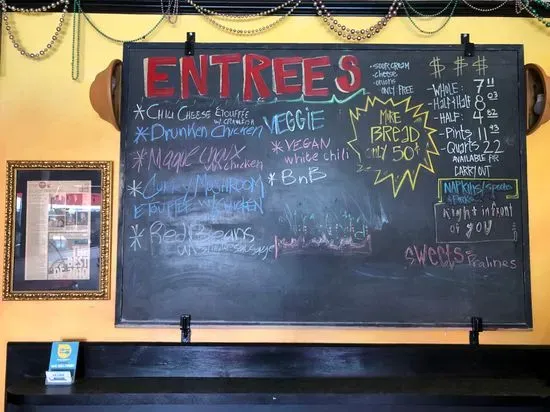 ENTREES
* CHILI CHEESE ETOUFFEE
W/ CRAWFISH
* DRUNKEN CHICKEN
* MAQUE CHOUX
W/ CHICKEN
* CURRY MUSHROOM
ETOUFFEE W/ CHICKEN
* RED BEANS
W/ SMOKED SAUSAGE
VEGGIE
* VEGAN
white chili
* BnB
-SOUR CREAM
-cheese
-onions
ONLY FREE
MORE
BREAD
ONLY 50¢
$ $ $
- WHOLE: 7 11
- Half+Half 8 03
- HALF: 4 82
- Pints 11 43
- Quarts 22
AVAILABLE FOR
CARRY OUT
NAPKINS/spoons
+ Forks
Right in front
of you
SWEETS
Pralines
BEST